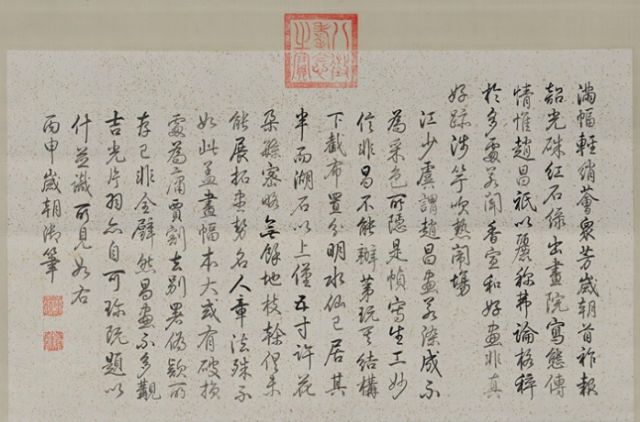 八徵耄念之寶
滿幅輕綃薈眾芳歲朝首祚報
韶光硃紅石綠出畫院寫態傳
情惟趙昌祇以麗稱弗論格
於多處若聞香宣和好畫非真
好踪涉竽吹熱鬧場
江少虞謂趙昌畫若染成不
為采色所隱是幀寫生工妙
信非昌不能辦第玩其結構
下截布置分明水仙已居其
半而湖石以上僅五寸許花
朶繇密略無餘地枝榦促未
能展拓畫勢名人章法殊不
如此蓋畫幅本大或有破損
處為庸賈割去別署偽款所
存已非全璧然昌畫不多觀
吉光片羽亦自可珍既題以
什並識所見如右
丙申歲朝御筆